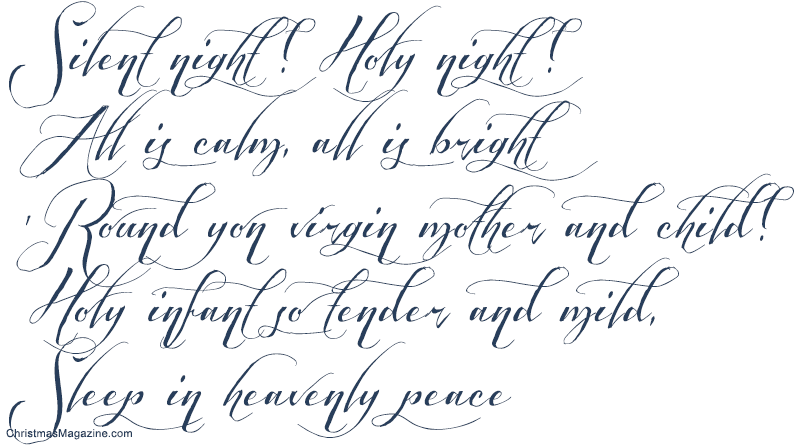 Silent night! Holy night!
All is calm, all is bright
'Round yon virgin mother and child!
Holy infant so tender and mild,
Sleep in heavenly peace
ChristmasMagazine.com